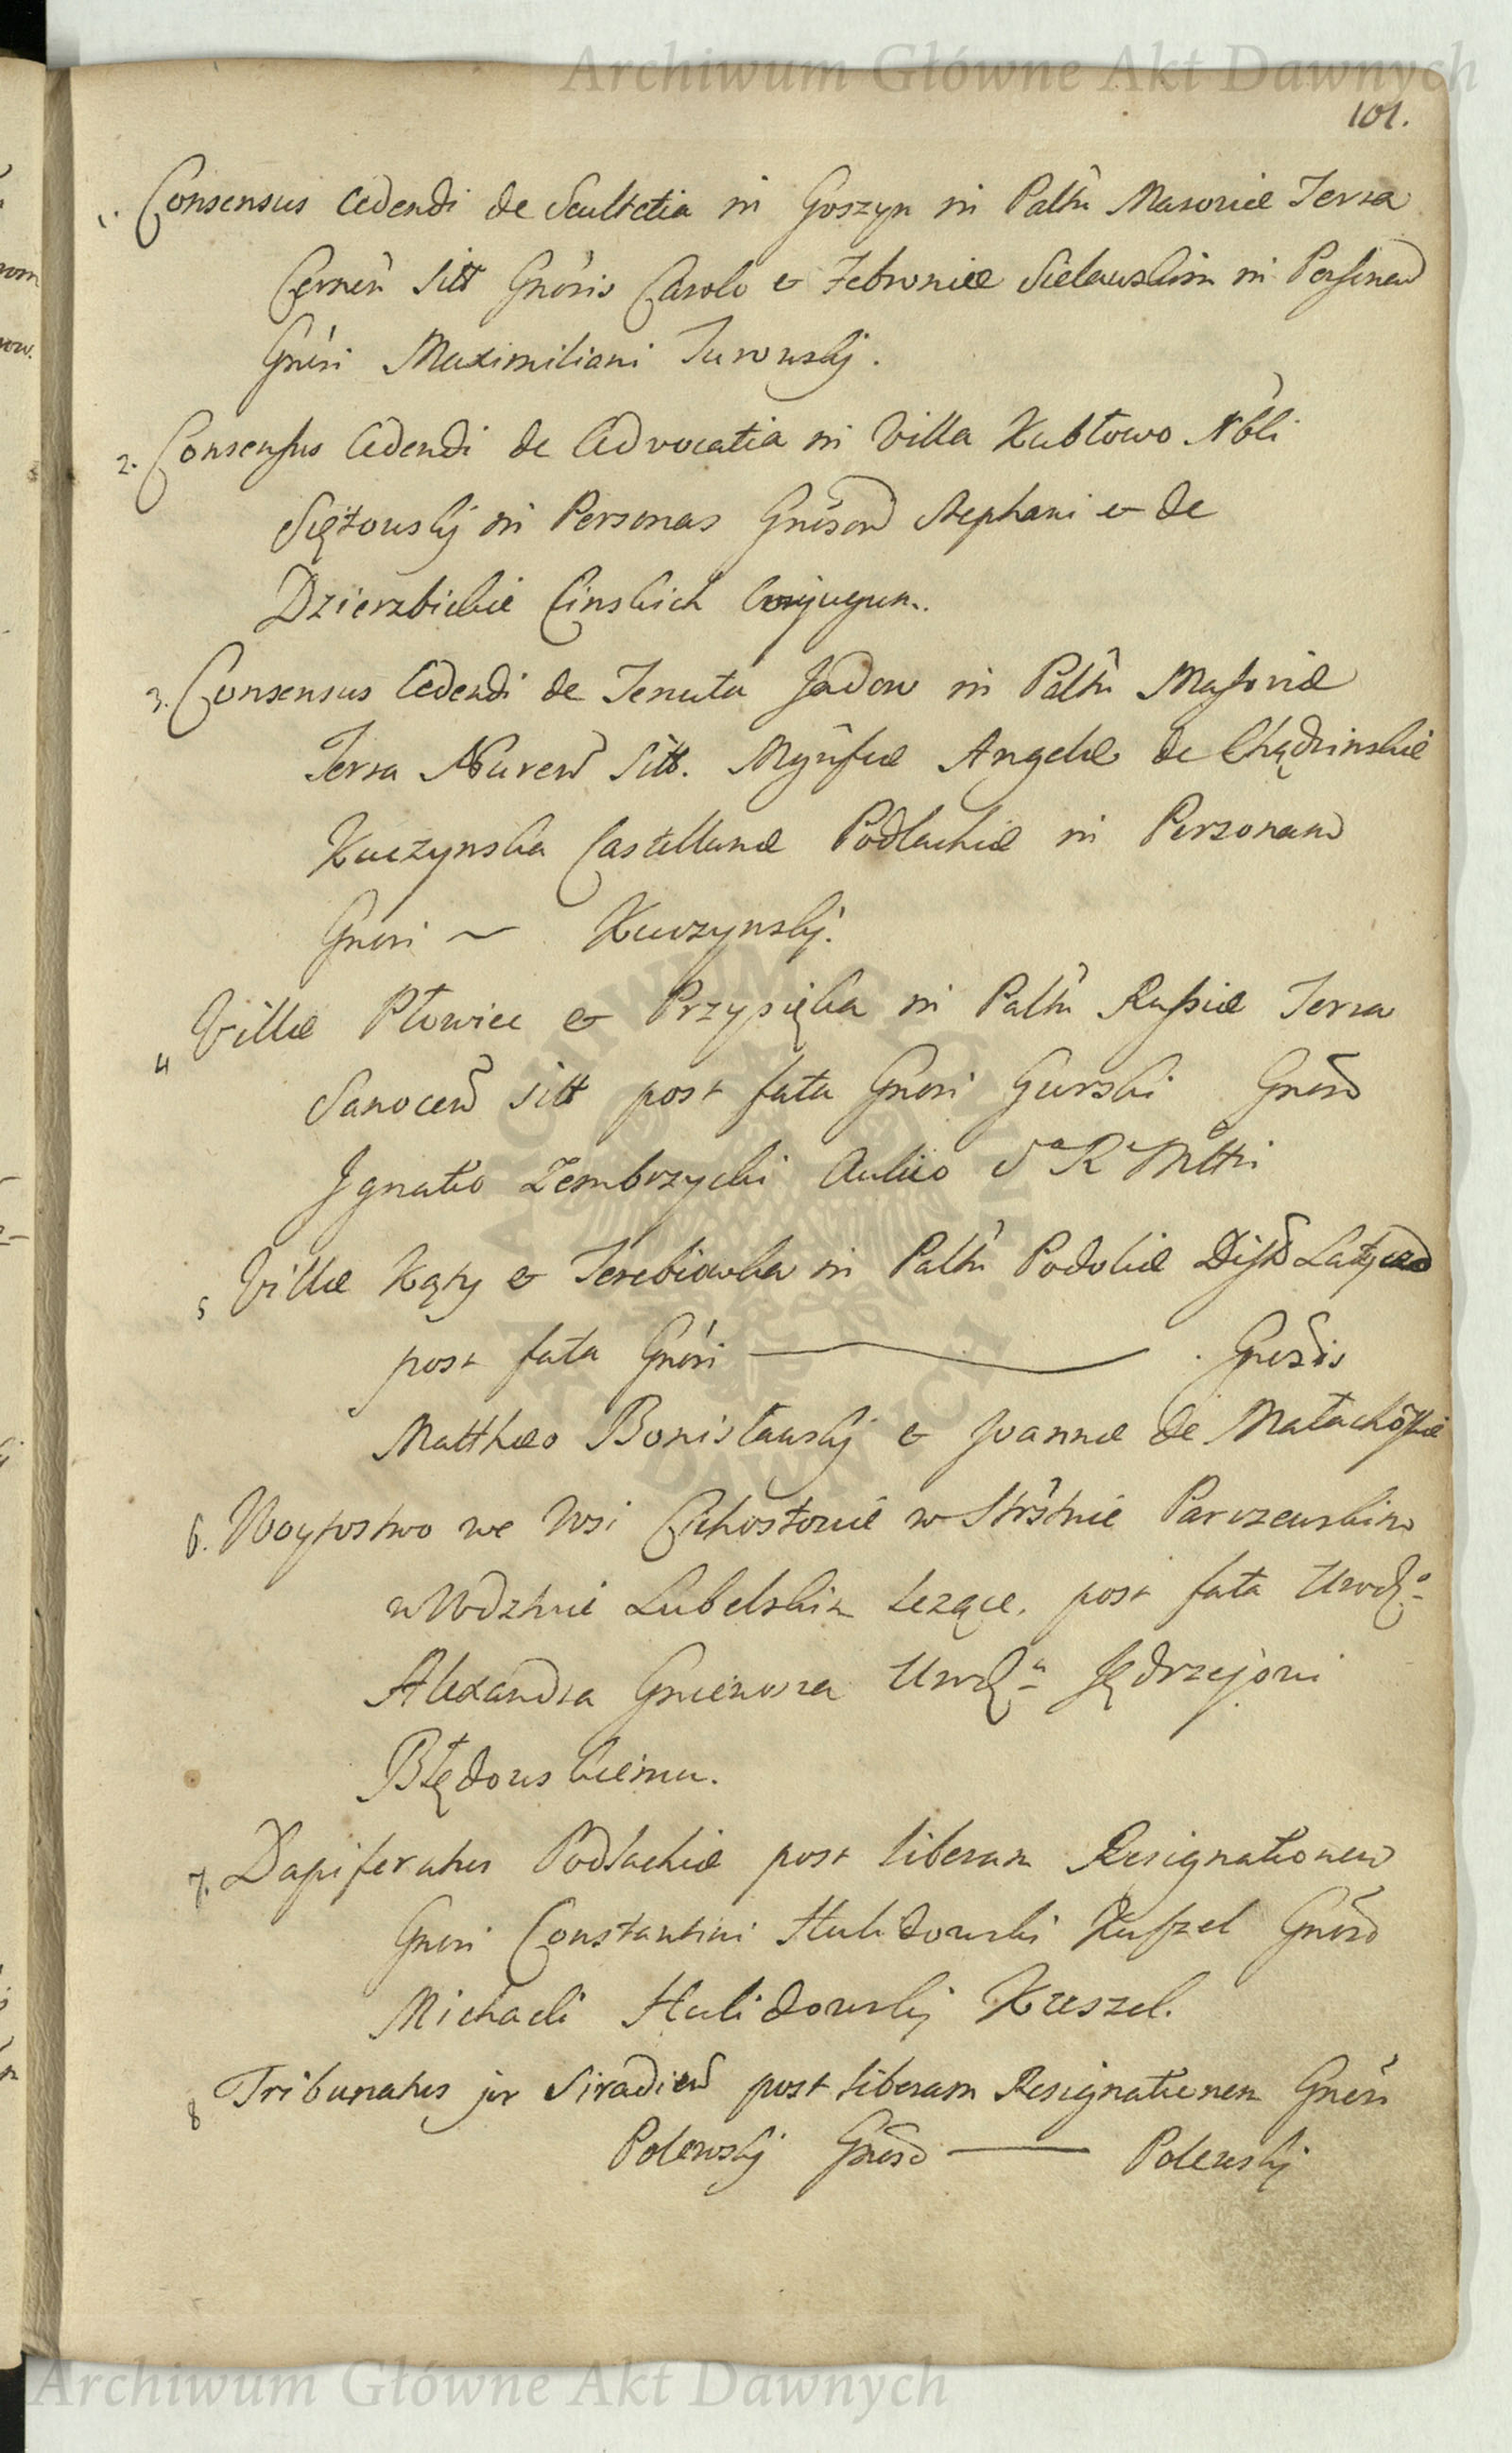 Archiwum Główne Akt Dawnych
101.
1. Consensus Cedendi de Scultetia in Goszyn in Paltu Masoviæ Terra
Cernen sitt Gnosis Carolo et Febroniæ Sielawskim in Personam
Gnosi Maximiliani Turowskij.
2. Consensus Cedendi de Advocatia in Villa Kubłowo Nobli
Siężowskij in Personas Gnosorum Stephani et de
Dzierzbickie Cinskich Conjugum.
3. Consensus Cedendi de Tenuta Jadow in Paltu Masoviæ
Terra Nuren Sitt. Mgnifcæ Angelæ de Chądzinskie
Kuczynska Castellanæ Podlachiæ in Personam
Gnosi ~ Kuczynskij.
4 Villæ Płowiec et Przysięka in Paltu Russiæ Terra
Sanocen sitt post fata Gnosi Gurski Gnoso
Ignatio Zembrzycki Aulico Sa Re Mtti
5 Villæ Kąty et Terebiowka in Paltu Podoliæ Distr Latycz
post fata Gnosi ——— Gnosis
Matthæo Bonisławskij et Joannæ de Małachoskie
6. Woytostwo we Wsi Cichostowie w Strstwie Parczewskim
w Wdztwie Lubelskim Leżące, post fata Urodzo
Alexandra Gniewosza Urodzu Jędrzejowi
Błędowskiemu.
7. Dapiferatus Podlachiæ post liberam Resignationem
Gnosi Constantini Kuszel Gnoso
Michaeli Kuszel.
8 Tribunatus jer Siradien post liberam Resignationem Gnosi
Polewskij Gnoso —— Polewskij
Archiwum Główne Akt Dawnych